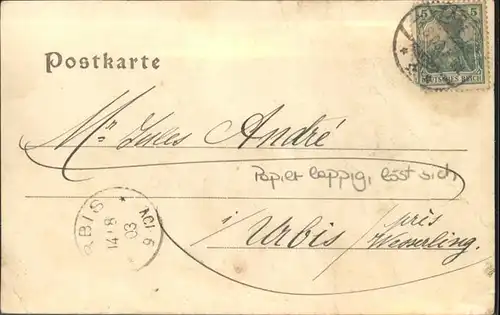 Postkarte
5 5
DEUTSCHES REICH
Mr Jules André
Papier lappig, löst sich
i/ Urbis / près
Wesserling.
RBIS *
14 8
03